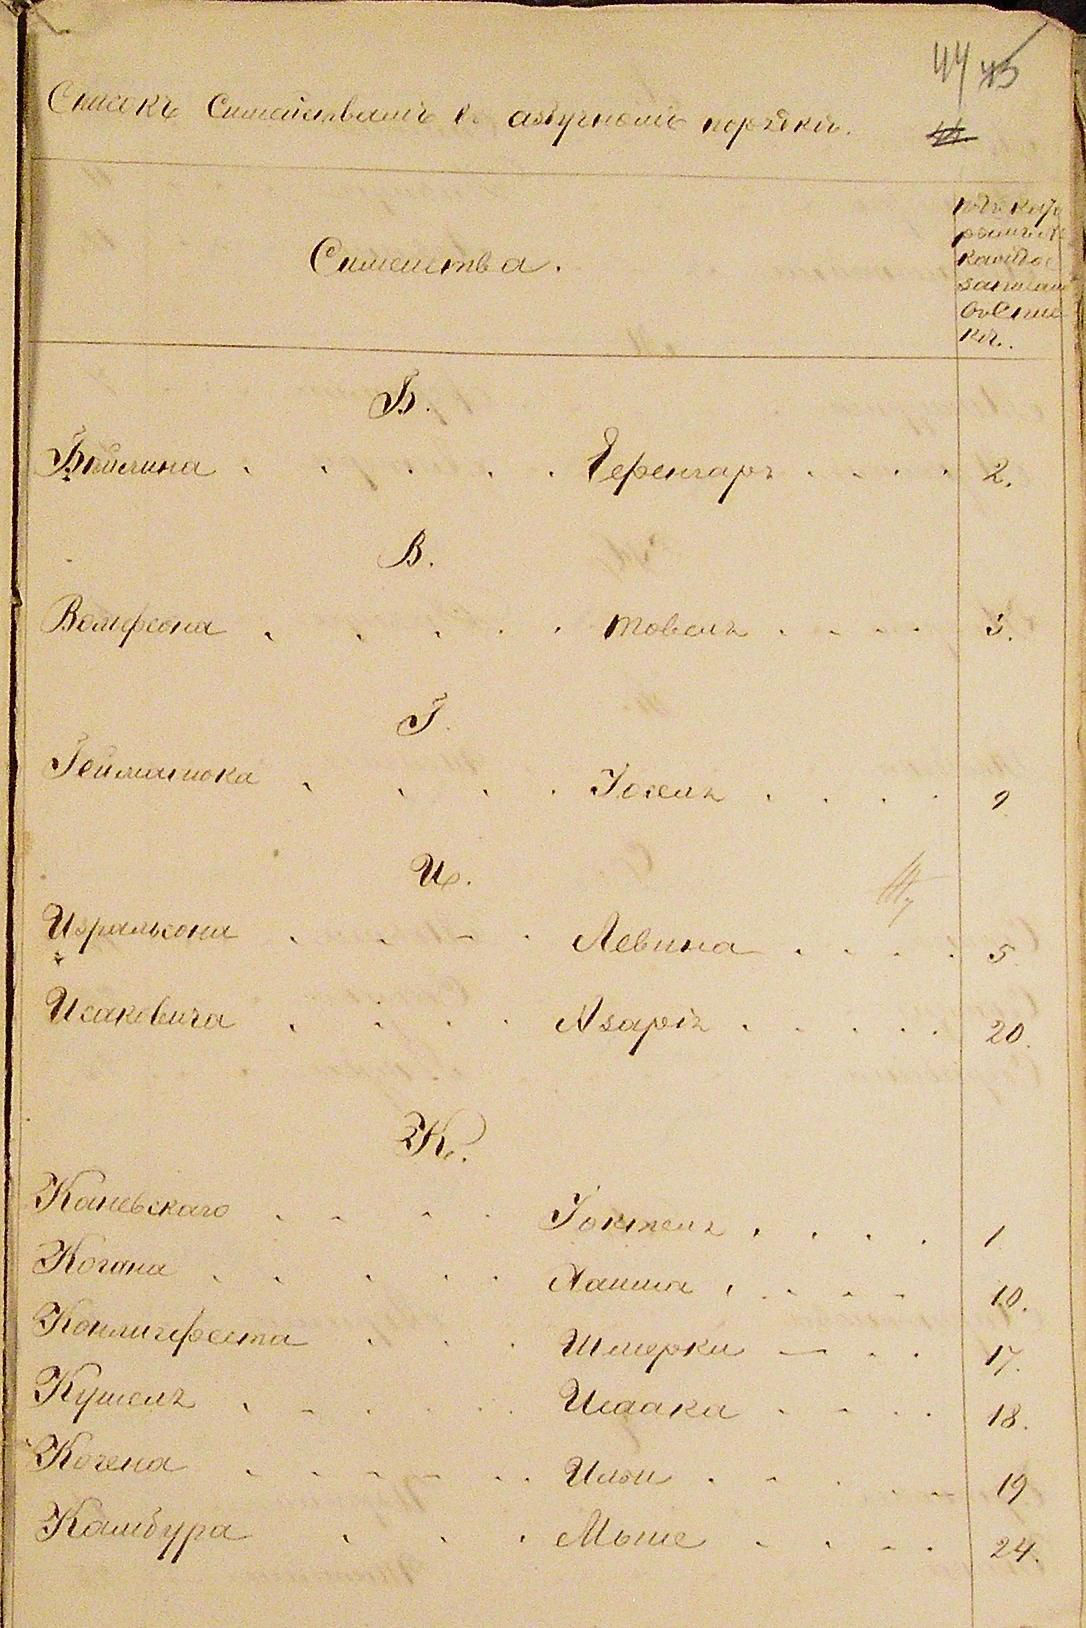 44 45
Списокъ Симействамъ въ азбучномъ порядкѣ.
44.
Симейства.
подъ кото
рымъ №
каждое
записано
въ Спис
кѣ.
Б.
Бейлина . . . . . Беренгаръ . . . . 2.
В.
Вольфсона . . . . . Товель . . . . 3.
Г.
Гейманюка . . . . Іосель . . . . 9
И.
Изральсона . . . . Левина . . . . 5
Исаковича . . . . Азаріъ . . . . . 20.
К.
Каневскаго . . . . Іоктель . . . . 1
Когана . . . . . Хаима . . . . 10.
Шмерки . . . 17.
Кушель . . . . . Исаака . . . . 18.
Когена . . . . . . Ильи . . . . 19
Камбура . . . Мыше . . . . 24.